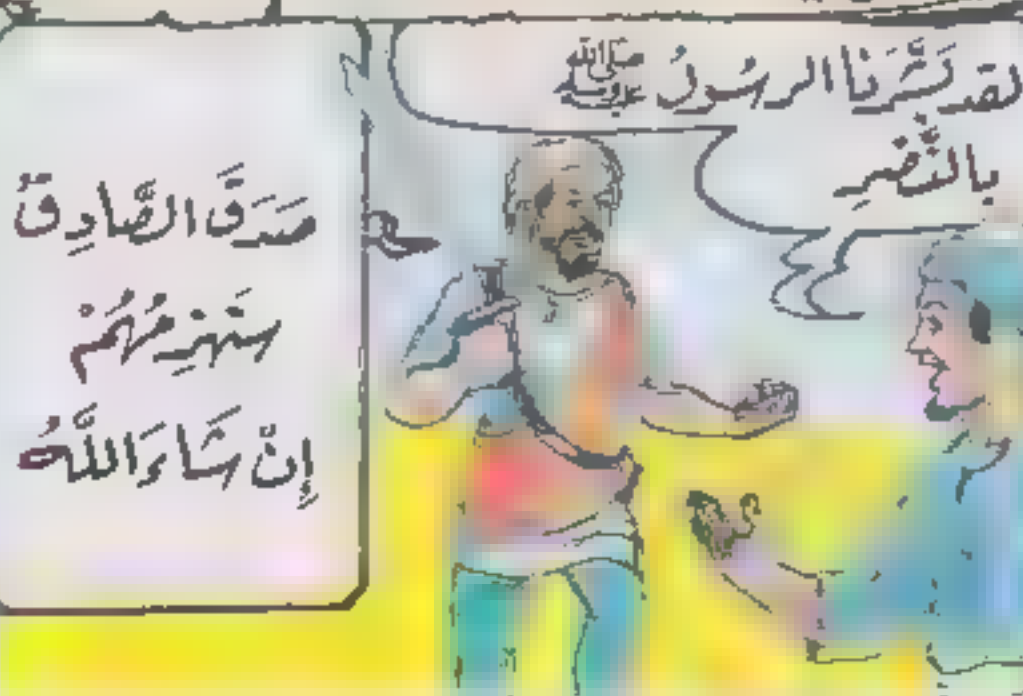 لقد بَشَّرَنا الرسُولُ ﷺ
بالنَّصْرِ
صَدَقَ الصَّادِقُ
سَنَهْزِمُهُمْ
إِنْ شَاءَ اللَّهُ